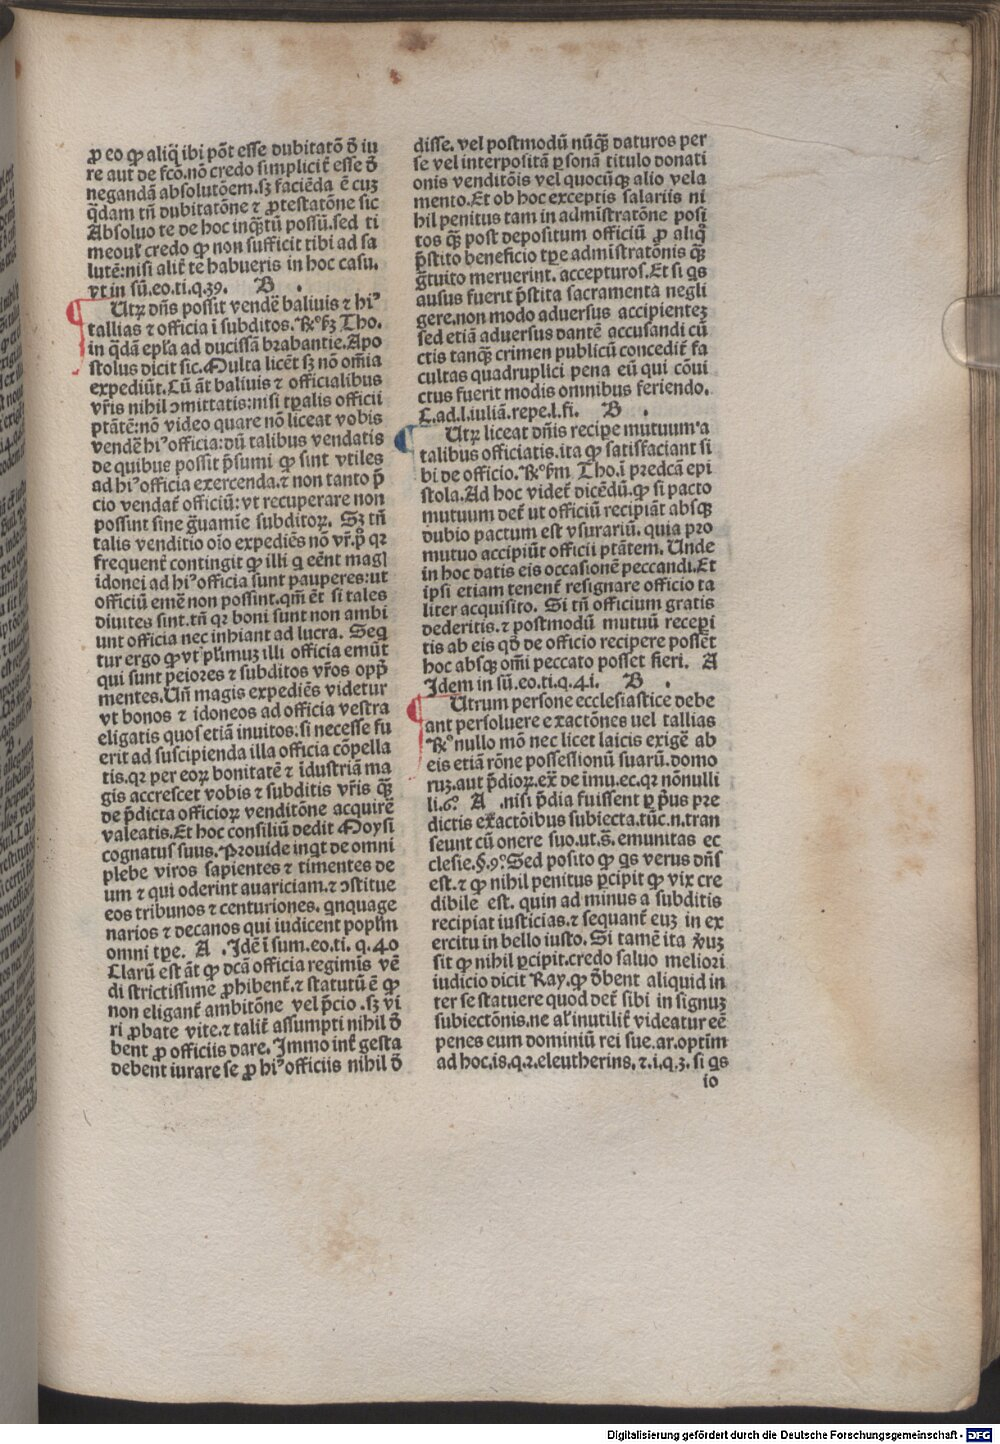 ꝓ eo ꝙ aliq̄ ibi põt esse dubitatõ ð iu
re aut de fcõ.nõ credo simplicit̃ esse ð
negandã absolutõem.sꝫ faciẽda ẽ cuꝫ
q̃dam tñ dubitatõne ⁊ ꝓtestatõne sic
Absoluo te de hoc inqꝫtũ possũ.sed ti
meoꝛ credo ꝙ non sufficit tibi ad sa
lutẽ:nisi alit̃ te habueris in hoc casu.
vt in sũ.eo.ti.q.39. B .
Utꝝ dñs possit vendẽ baliuis ⁊ hiꝰ
tallias ⁊ officia ĩ subditos.℞ᵒ ẜꝫ Tho.
in q̃dã epl̃a ad ducissã brabantie.Apo
stolus dicit sic.Multa licẽt sꝫ nõ om̃ia
expediũt.Cũ ãt baliuis ⁊ officialibus
vr̃is nihil ɔmittatis:nisi tp̃alis officii
ptãtẽ:nõ video quare nõ liceat vobis
vendẽ hiꝰ officia:dũ talibus vendatis
de quibue possit p̃sumi ꝙ sint vtiles
ad hiꝰ officia exercenda.⁊ non tanto p̃
cio vendat̃ officiũ:vt recuperare non
possint sine g̃uamie subditoꝝ. Sꝫ tñ
talis venditio oĩo expediẽs nõ vr̃.pᵒ qꝛ
frequent̃ contingit ꝙ illi q eẽnt magꝭ
idonei ad hiꝰ officia sunt pauperes:ut
officiũ emẽ non possint.qm̃ et̃ si tales
diuites sint.tñ qꝛ boni sunt non ambi
unt officia nec inhiant ad lucra. Seq̃
tur ergo ꝙ vt pl̃imuꝫ illi officia emũt
qui sunt peiores ⁊ subditos vr̃os opp̃
mentes.Uñ magis expediẽs videtur
vt bonos ⁊ idoneos ad officia vestra
eligatis quos etiã inuitos:si necesse fu
erit ad suscipienda illa officia cõpella
tis.qꝛ per eoꝝ bonitatẽ ⁊ ĩdustriã ma
gis accrescet vobis ⁊ subditis vr̃is qꝫ
de p̃dicta officioꝝ venditõne acquirẽ
valeatis.Et hoc consiliũ dedit Moysi
cognatus suus.Prouide inqt de omni
plebe viros sapientes ⁊ timentes de
um ⁊ qui oderint auariciam.⁊ ɔstitue
eos tribunos ⁊ centuriones. qnquage
narios ⁊ decanos qui iudicent popl̃m
omni tp̃e. A .Idẽ ĩ sum.eo.ti. q.40
Clarũ est ãt ꝙ dcã officia regimĩs vẽ
di strictissime ꝓhibent̃.⁊ statutũ ẽ ꝙ
non eligant̃ ambitõne vel p̃cio .sꝫ vi
ri ꝓbate vite.⁊ talit̃ assumpti nihil ð
bent ꝓ officiis dare. Immo int̃ gesta
debent iurare se ꝓ hiꝰ officiis nihil ð
disse. vel postmodũ nũqꝫ daturos per
se vel interpositã ꝑsonã titulo donati
onis venditõis vel quocũqꝫ alio vela
mento.Et ob hoc exceptis salariis ni
hil penitus tam in admĩstratõne posi
tos qꝫ post depositum officiũ ꝓ aliq̃
p̃stito beneficio tp̃e admĩstratõnis qꝫ
g̃tuito meruerint. accepturos.Et si qs
ausus fuerit p̃stita sacramenta negli
gere.non modo aduersus accipienteꝫ
sed etiã aduersus dantẽ accusandi cũ
ctis tanqꝫ crimen publicũ concedit̃ fa
cultas quadruplici pena eũ qui cõui
ctus fuerit modis omnibus feriendo.
C.ad.l.iuliã.repe.l.fi. B .
Utꝝ liceat dñis recipe mutuum a
talibus officiatis.ita ꝙ satisfaciant si
bi de officio.℞ᵒ ẜm Tho.ĩ predcã epi
stola.Ad hoc videt̃ dicẽdũ.ꝙ si pacto
mutuum det̃ ut officiũ recipiãt absqꝫ
dubio pactum est vsurariũ. quia pro
mutuo accipiũt officii ptãtem. Unde
in hoc datis eis occasionẽ peccandi.Et
ipsi etiam tenent̃ resignare officio ta
liter acquisito. Si tñ officium gratis
dederitis.⁊ postmodũ mutuũ receꝑi
tis ab eis qð de officio recipere possẽt
hoc absqꝫ om̃i peccato posset fieri. A
Idem in sũ.eo.ti.q.41. B .
Utrum persone ecclesiastice debe
ant persoluere exactõnes uel tallias
℞ᵒ nullo mõ nec licet laicis exigẽ ab
eis etiã rõne possessionũ suarũ.domo
ruꝫ.aut p̃dioꝝ.ex̃ de ĩmu.ec.qꝛ nõnulli
li.6? A .nisi p̃dia fuissent ꝑ pᵒus pre
dictis ex̃actõibus subiecta.tũc.n.tran
seunt cũ onere suo.ut.s̃.emunitas ec
clesie.§.9? Sed posito ꝙ qs verus dñs
est.⁊ ꝙ nihil penitus ꝑcipit ꝙ vix cre
dibile est. quin ad minus a subditis
recipiat iusticias.⁊ sequant̃ euꝫ in ex
ercitu in bello iusto. Si tamẽ ita v̾uꝫ
sit ꝙ nihil ꝑcipit.credo saluo meliori
iudicio dicit Ray.ꝙ ðbent aliquid in
ter se statuere quod det̃ sibi in signuꝫ
subiectõnis.ne al̃ inutilit̃ videatur eẽ
penes eum dominiũ rei sue.ar.optim
ad hoc.is.q.2.eleutherins. ⁊.1.q.3. si qs
io
Digitalisierung gefördert durch die Deutsche Forschungsgemeinschaft - DFG